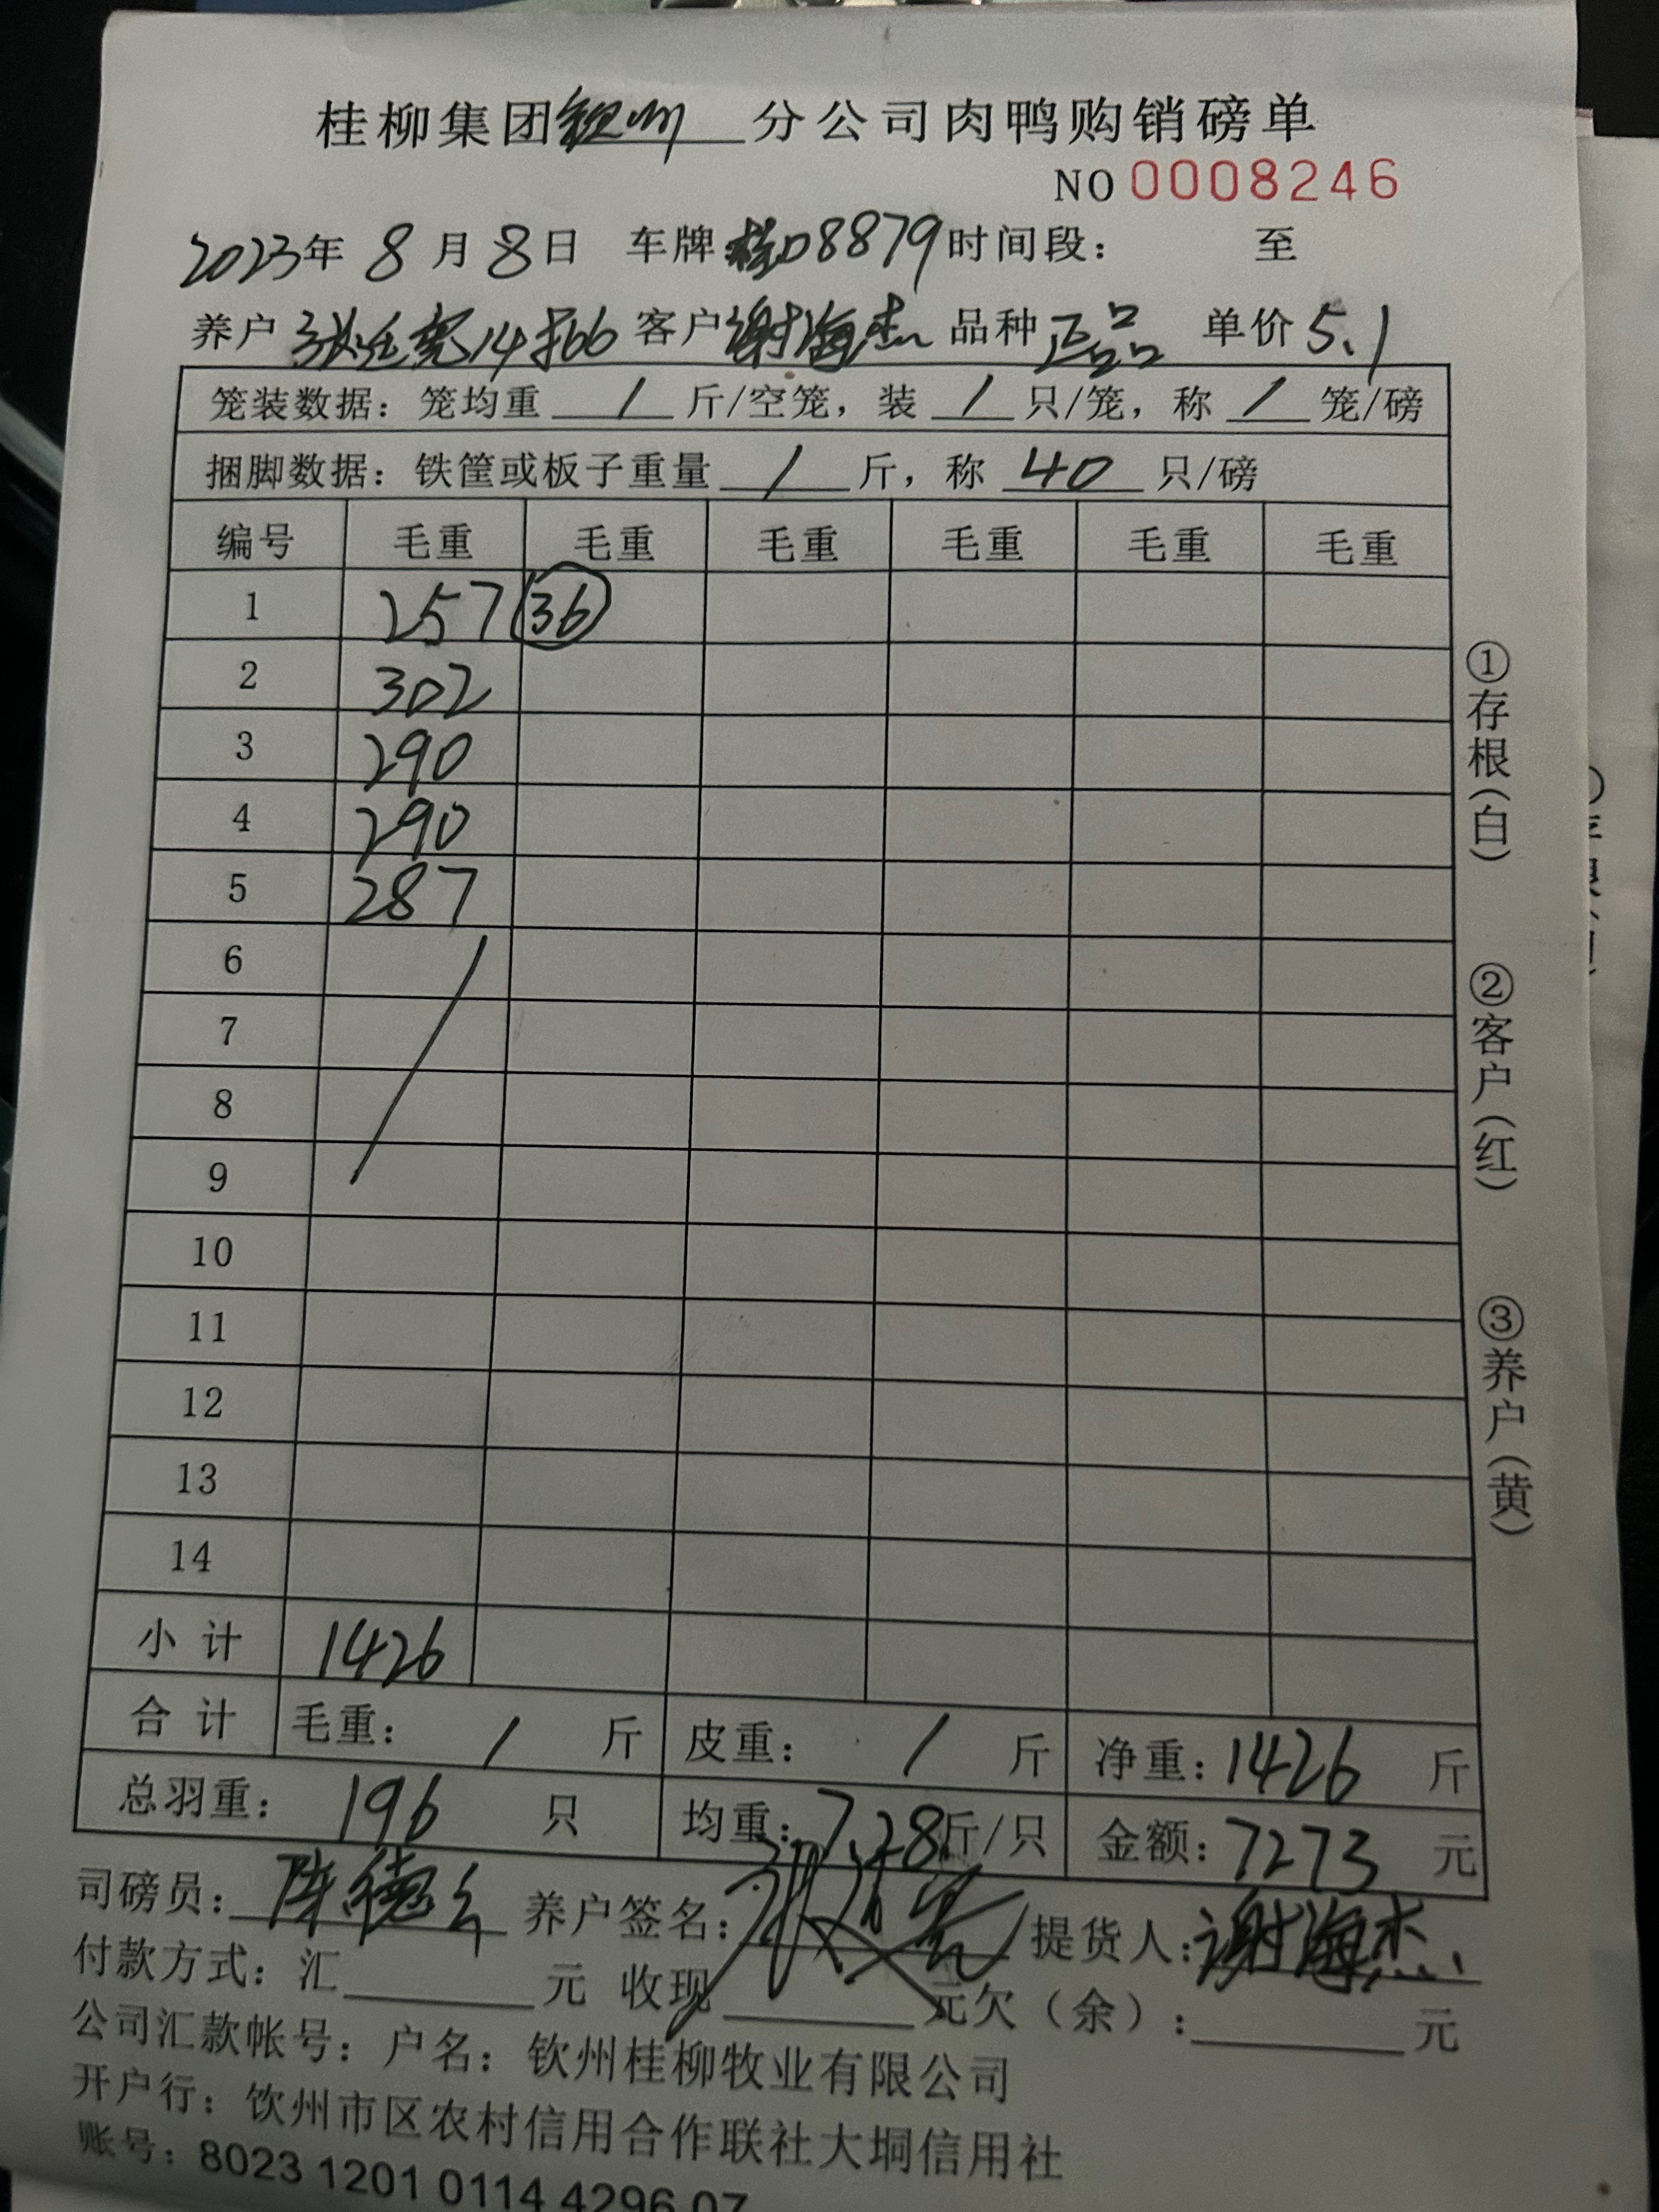 桂柳集团钦州分公司肉鸭购销磅单
NO 0008246
2023年 8 月 8 日 车牌 桂D8879 时间段： 至
养户 14 客户 谢海杰 品种 正品 单价 5.1
笼装数据：笼均重 / 斤/空笼，装 / 只/笼，称 / 笼/磅
捆脚数据：铁筐或板子重量 / 斤，称 40 只/磅
编号 毛重 毛重 毛重 毛重 毛重 毛重
1 257 36
2 302
3 290
4 290
5 287
6
7
8
9
10
11
12
13
14
小计 1426
合计 毛重： / 斤 皮重： / 斤 净重：1426 斤
总羽重： 196 只 均重：7.28斤/只 金额：7273 元
司磅员： 陈德 养户签名： 提货人：谢海杰
付款方式：汇 元 收现 元欠（余）： 元
公司汇款帐号：户名：钦州桂柳牧业有限公司
开户行：钦州市区农村信用合作联社大垌信用社
账号：8023 1201 0114 4296 07
①存根（白）
②客户（红）
③养户（黄）